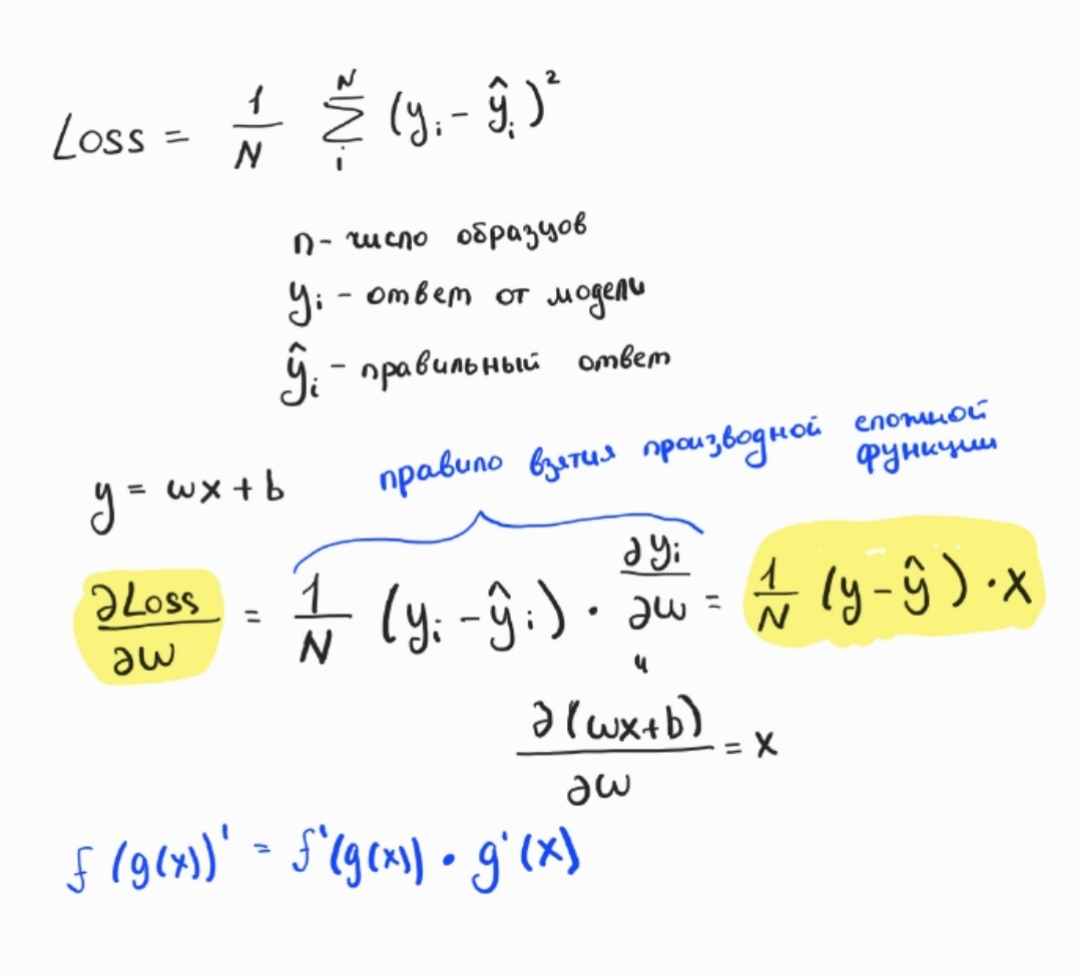 Loss = 1/N Σ_i^N (y_i - ŷ_i)²
n - число образцов
y_i - ответ от модели
ŷ_i - правильный ответ
правило взятия производной сложной
функции
y = wx + b
∂Loss/∂w = 1/N (y_i - ŷ_i) · ∂y_i/∂w = 1/N (y - ŷ) · x
"
∂(wx+b)/∂w = x
f(g(x))' = f'(g(x)) · g'(x)